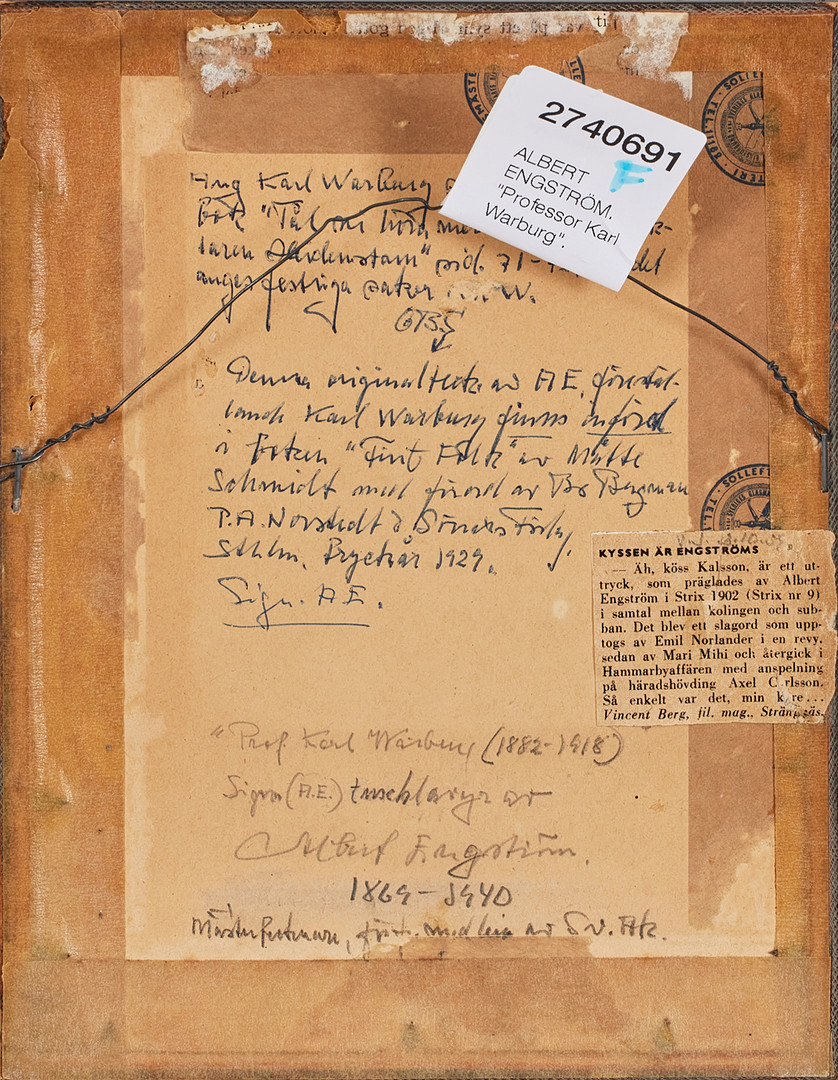 2740691
F
ALBERT
ENGSTRÖM.
"Professor Karl
Warburg".
Ang Karl Warburg
bok "Tål
laren Heidenstam" sid. 71- det
anges festliga saker W.
OBS
Denna originalteckn av A E, förestäl-
lande Karl Warburg finns införd
i boken "Fint Folk" av Mätte
Schmidt med förord av Bo Bergman
P.A. Norstedt & Söners Förlg,
Sthlm. Tryckår 1929.
Sign. A E.
KYSSEN ÄR ENGSTRÖMS
— Äh, köss Kalsson, är ett ut-
tryck, som präglades av Albert
Engström i Strix 1902 (Strix nr 9)
i samtal mellan kolingen och sub-
ban. Det blev ett slagord som upp-
togs av Emil Norlander i en revy,
sedan av Mari Mihi och återgick i
Hammarbyaffären med anspelning
på häradshövding Axel C rlsson.
Så enkelt var det, min k re...
Vincent Berg, fil. mag., Strängnäs.
"Prof. Karl Warburg (1882-1918)
Sign (A.E.) tuschlavyr av
Albert Engström.
1869-1940
Mästertecknare, medlem av Sv. Ak.